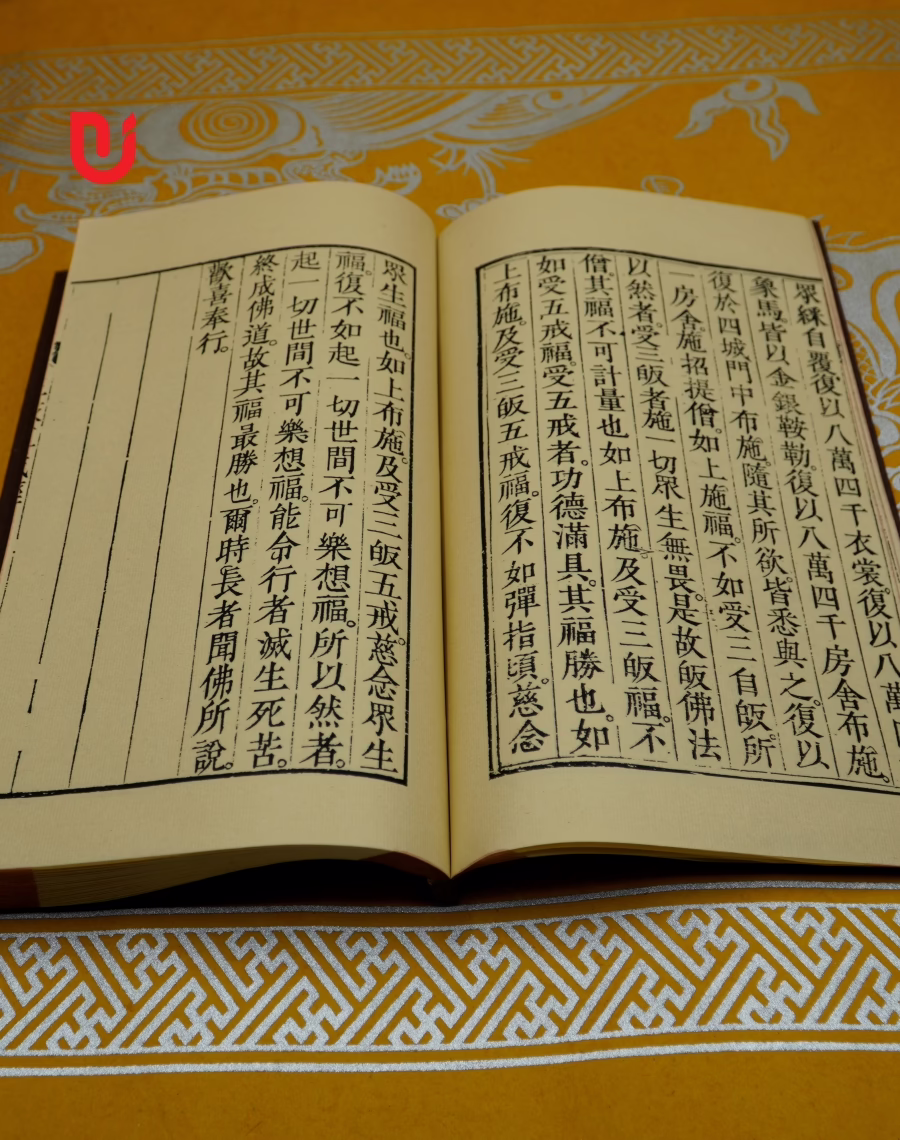 眾綵自覆復以八萬四千衣裳。復以八萬
象馬。皆以金銀鞍勒。復以八萬四千房舍布施。
復於四城門中布施。隨其所欲。皆悉與之。復以
一房舍。施招提僧。如上施福。不如受三自皈。所
以然者。受三皈者施一切眾生無畏。是故皈佛法
僧。其福不可計量也如上布施。及受三皈福。不
如受五戒福。受五戒者。功德滿具。其福勝也。如
上布施。及受三皈五戒福。復不如彈指頃。慈念
眾生福也。如上布施。及受三皈五戒。慈念眾生
福。復不如起一切世間不可樂想福。所以然者。
起一切世間不可樂想福。能令行者滅生死苦。
終成佛道。故其福最勝也。爾時長者聞佛所說。
歡喜奉行。